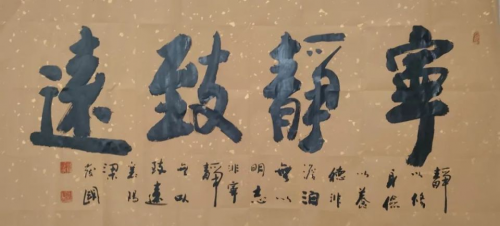 寧靜致遠
靜
以修
身儉
以養
德非
澹泊
無以
明志
非寧
靜
无以
致遠
梁
國